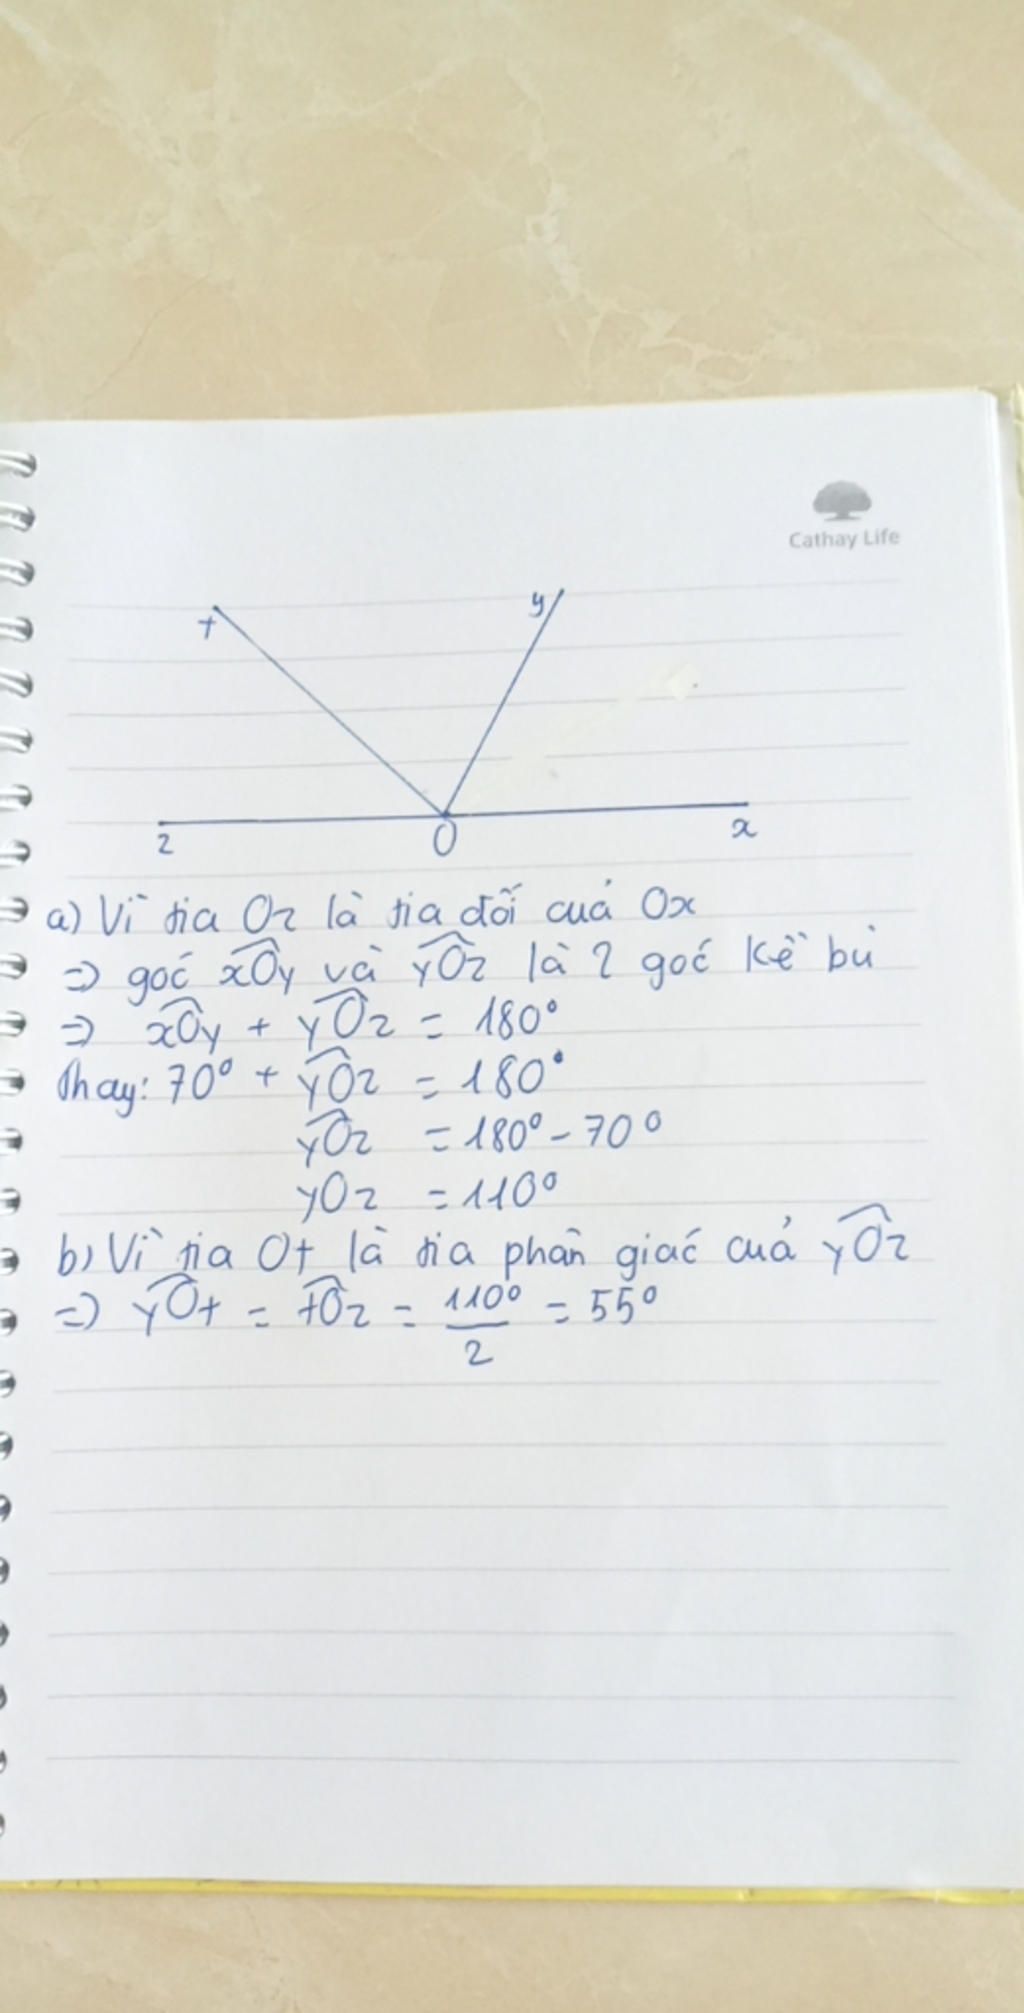 Cathay Life
t
y
z
O
x
a) Vì tia Oz là tia đối của Ox
=> góc xÔy và yÔz là 2 góc kề bù
=> xÔy + yÔz = 180°
Thay: 70° + yÔz = 180°
yÔz = 180° - 70°
yOz = 110°
b) Vì tia Ot là tia phân giác của yÔz
=> yÔt = tÔz = 110°/2 = 55°